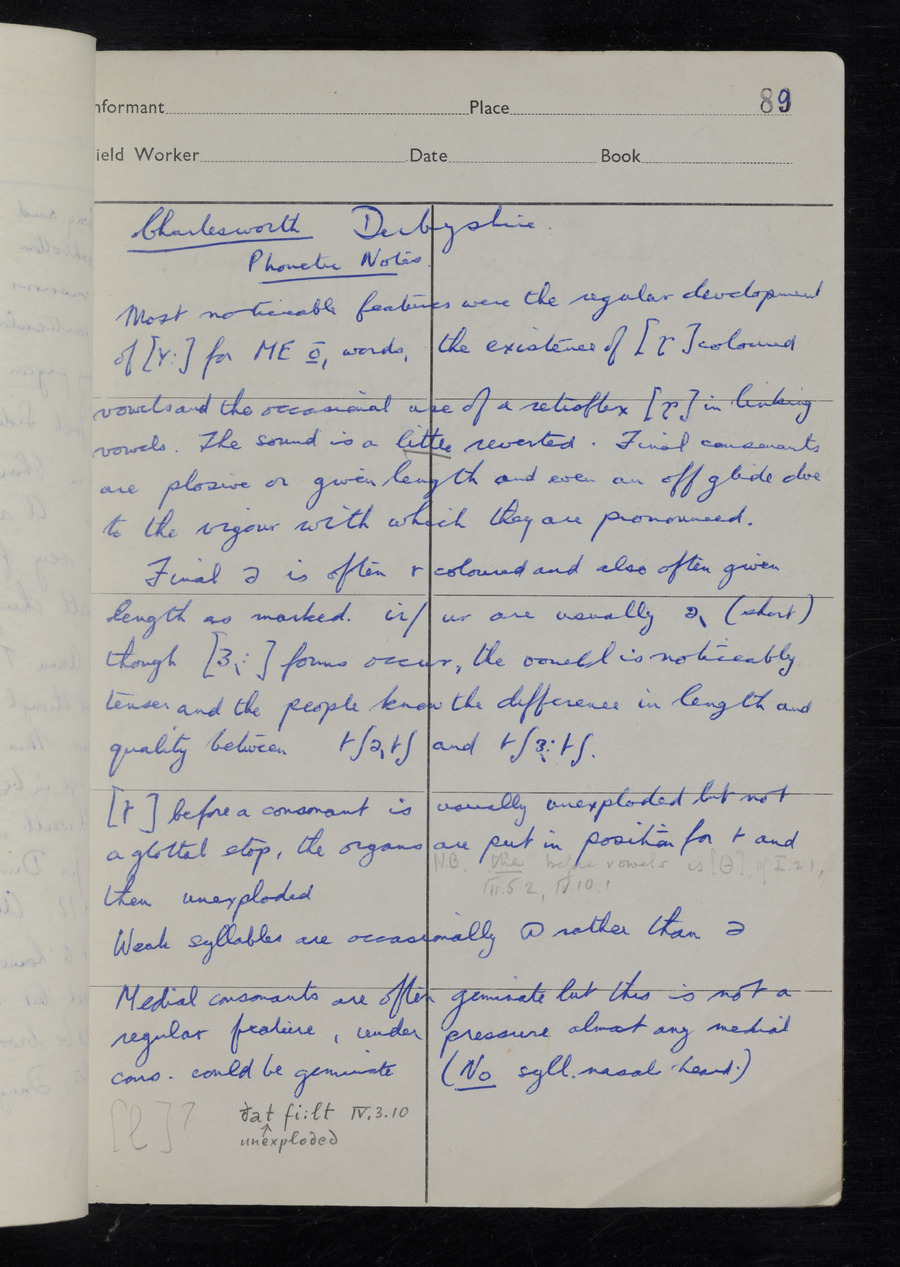 nformant Place 89
ield Worker Date Book
Charlesworth Derbyshire.
Phonetic Notes.
Most noticeable features were the regular development
of [Y:] for ME ō, words, the existence of [ɽ] coloured
vowels and the occasional use of a retroflex [ɽ] in linking
vowels. The sound is a little reverted. Final consonants
are plosive or given length and even an off glide due
to the vigour with which they are pronounced.
Final ə is often r coloured and also often given
length as marked. ir/ ur are usually ə˞ (short)
though [ɜ˞:] forms occur, the vowel is noticeably
tenser and the people know the difference in length and
quality between tʃə˞tʃ and tʃɜ˞:tʃ.
[t] before a consonant is usually unexploded but not
a glottal stop, the organs are put in position for t and
N.B. the before vowels is [θ], cf I.2.1,
then unexploded
II.5.2, IV.10.1
Weak syllables are occasionally ɷ rather than ə
Medial consonants are often geminate but this is not a
regular feature, under pressure almost any medial
cons. could be geminate (No syll. nasal heard.)
[l]? ðat fi:lt IV.3.10
unexploded